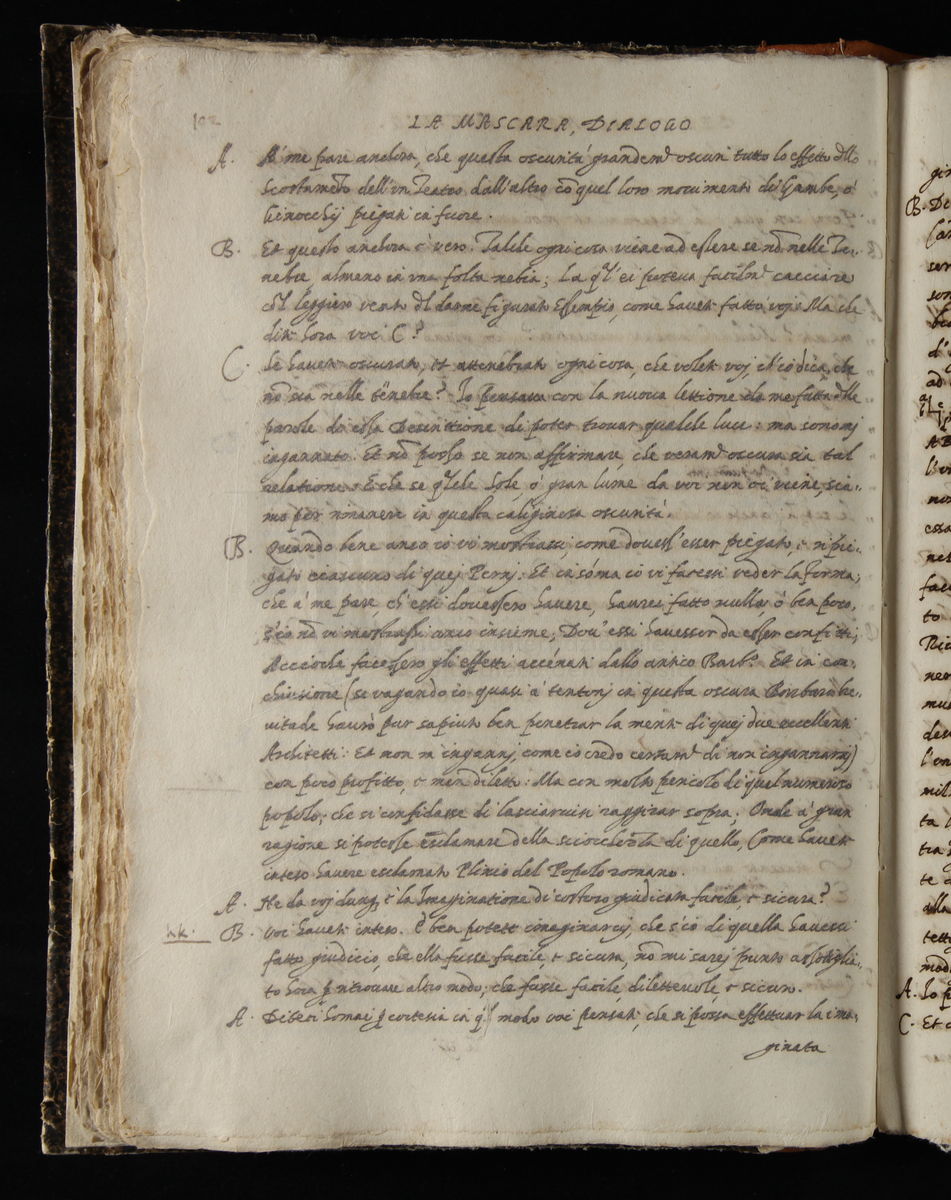 102
LA MASCARA, DIALOGO
A. A' me pare anchora, che questa oscurità grandem.te oscuri tutto lo effetto dello
scostamento dell'un Teatro dall'altro cõ quel loro movimento di Gambe, ò
Ginocchij piegati in fuore.
B. Et questo anchora è vero. Talche ogni cosa viene ad essere se nõ nelle Te-
nebre almeno in una folta nebia; La q.l ei poteva facilm.te cacciare
col leggiero vento del darne figurati Essempio, come havete fatto voj. Ma che
dite hora voi C?
C. Se havete oscurati, et attenebrati ogni cosa, che volete voj ch'io dica, che
nõ sia nelle tenebre? Io pensava con la nuova lettione da me fatta delle
parole di essa Descrittione di poter trovar qualche luce: ma sonomj
ingannato. Et nõ posso se non affirmare, che veram.te oscura sia tal
relatione. E che se q.lche Sole, ò gran lume da voi non ci viene, sia-
mo per rimanere in questa caliginosa oscurità.
B. Quando bene anco io vi mostrassi come dovess'esser piegato, e ripie-
gato ciascuno di quej Pernj. Et in sóma io vi facessi veder la forma,
che a' me pare ch'essi dovessero havere, haurei fatto nulla, ò ben poco,
s'io nõ vi mostrassi anco insieme, Dov'essi havesser da esser confitti;
Acciochè facessero gli effetti accénati dallo antico Barb.o Et in con-
chiusione (se vagando io quasi a' tentonj in questa oscura Bonbaro bre-
vitade haurò pur saputo ben penetrar la mente di quej due eccellenti
Architetti: Et non m'ingannj, come io credo certam.te di non ingannarmj)
con poco profitto, e men diletto: Ma con molto pericolo di quel numeroso
popolo, che si confidasse di lasciarvisi raggirar sopra; Onde a' gran
ragione si potesse esclamare della sciocchezza di quello, Come havete
inteso havere esclamato Plinio del Popolo romano.
A. Ne da voj dunq. è la Imaginatione di costoro giudicata facile, e sicura?
hk. B. Voi havete inteso. E ben potete imaginarvj, che s'io di quella havessi
fatto giudicio, che ella fusse facile, e sicura, nõ mi sarej punto assottiglia-
to hora p ritrovare altro modo, che fusse facile, dilettevole, e sicuro.
A. Diteci homai p cortesia in q.l modo voi pensati, che si possa effettuar la ima-
ginata